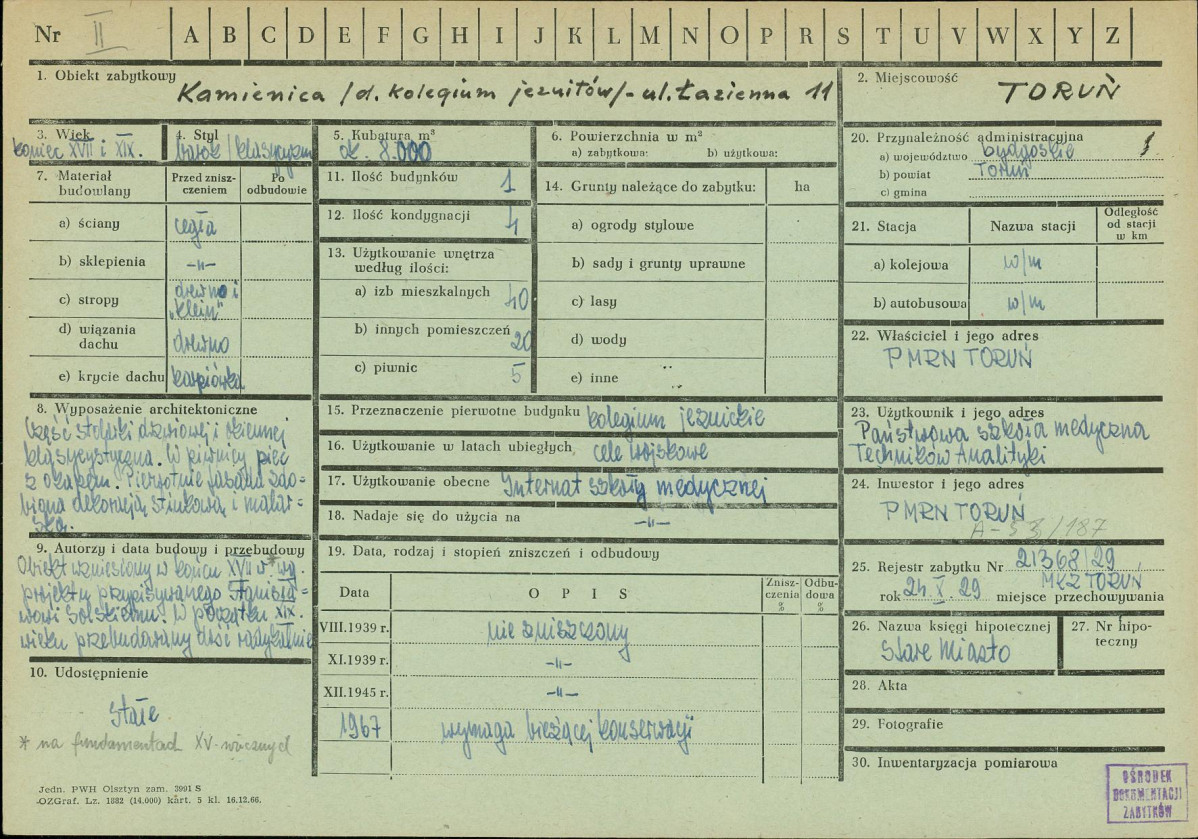 Nr II A B C D E F G H I J K L M N O P R S T U V W X Y Z
1. Obiekt zabytkowy
Kamienica /d. kolegium jezuitów/- ul. Łazienna 11
2. Miejscowość
TORUŃ
3. Wiek
koniec XVII i XIX.
4. Styl
barok/klasycyzm
5. Kubatura m³
ok. 8.000
6. Powierzchnia w m²
a) zabytkowa: b) użytkowa:
7. Materiał budowlany
Przed zniszczeniem
Po odbudowie
a) ściany cegła
b) sklepienia -"-
c) stropy drewno i
"klein"
d) wiązania
dachu drewno
e) krycie dachu karpiówka
8. Wyposażenie architektoniczne
Część stolarki drzwiowej i okiennej
klasycystyczna. W piwnicy piec
z okapem. Pierwotnie fasada zdo-
biona dekoracją stiukową i malar-
ską.
9. Autorzy i data budowy i przebudowy
Obiekt wzniesiony w końcu XVII w* wg.
projektu przypisywanego Stanisła-
wowi Solskiemu. W początku XIX.
wieku przebudowany dość radykalnie
10. Udostępnienie
stałe
* na fundamentach XV-wiecznych
11. Ilość budynków 1
12. Ilość kondygnacji 4
13. Użytkowanie wnętrza
według ilości:
a) izb mieszkalnych 40
b) innych pomieszczeń 20
c) piwnic 5
14. Grunty należące do zabytku: ha
a) ogrody stylowe
b) sady i grunty uprawne
c) lasy
d) wody
e) inne
15. Przeznaczenie pierwotne budynku kolegium jezuickie
16. Użytkowanie w latach ubiegłych cele wojskowe
17. Użytkowanie obecne Internat szkoły medycznej
18. Nadaje się do użycia na -"-
19. Data, rodzaj i stopień zniszczeń i odbudowy
Data
O P I S
Zniszczenia %
Odbudowa %
VIII.1939 r. nie zniszczony
XI.1939 r. -"-
XII.1945 r. -"-
1967 wymaga bieżącej konserwacji
20. Przynależność administracyjna
a) województwo bydgoskie
b) powiat Toruń
c) gmina
21. Stacja
Nazwa stacji
Odległość
od stacji
w km
a) kolejowa w/m
b) autobusowa w/m
22. Właściciel i jego adres
PMRN TORUŃ
23. Użytkownik i jego adres
Państwowa szkoła medyczna
Techników Analityki
24. Inwestor i jego adres
PMRN TORUŃ
A-53/187
25. Rejestr zabytku Nr 21368/29
rok 24.X.29 miejsce przechowywania
MKZ TORUŃ
26. Nazwa księgi hipotecznej
Stare Miasto
27. Nr hipo-
teczny
28. Akta
29. Fotografie
30. Inwentaryzacja pomiarowa
OŚRODEK
DOKUMENTACJI
ZABYTKÓW
Jedn. PWH Olsztyn zam. 3991 S
-OZGraf. Lz. 1882 (14.000) kart. 5 kl. 16.12.66.